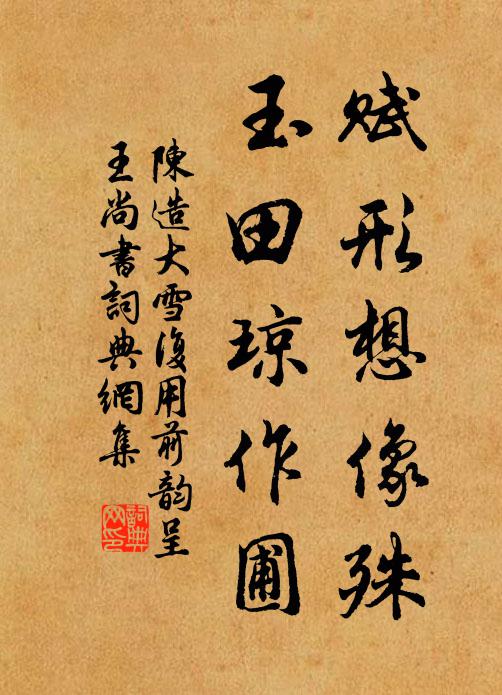 賦形想像殊
玉田琼作圃
陳造大雪復用前韵呈
王尚書詞典網集
詞典
网印